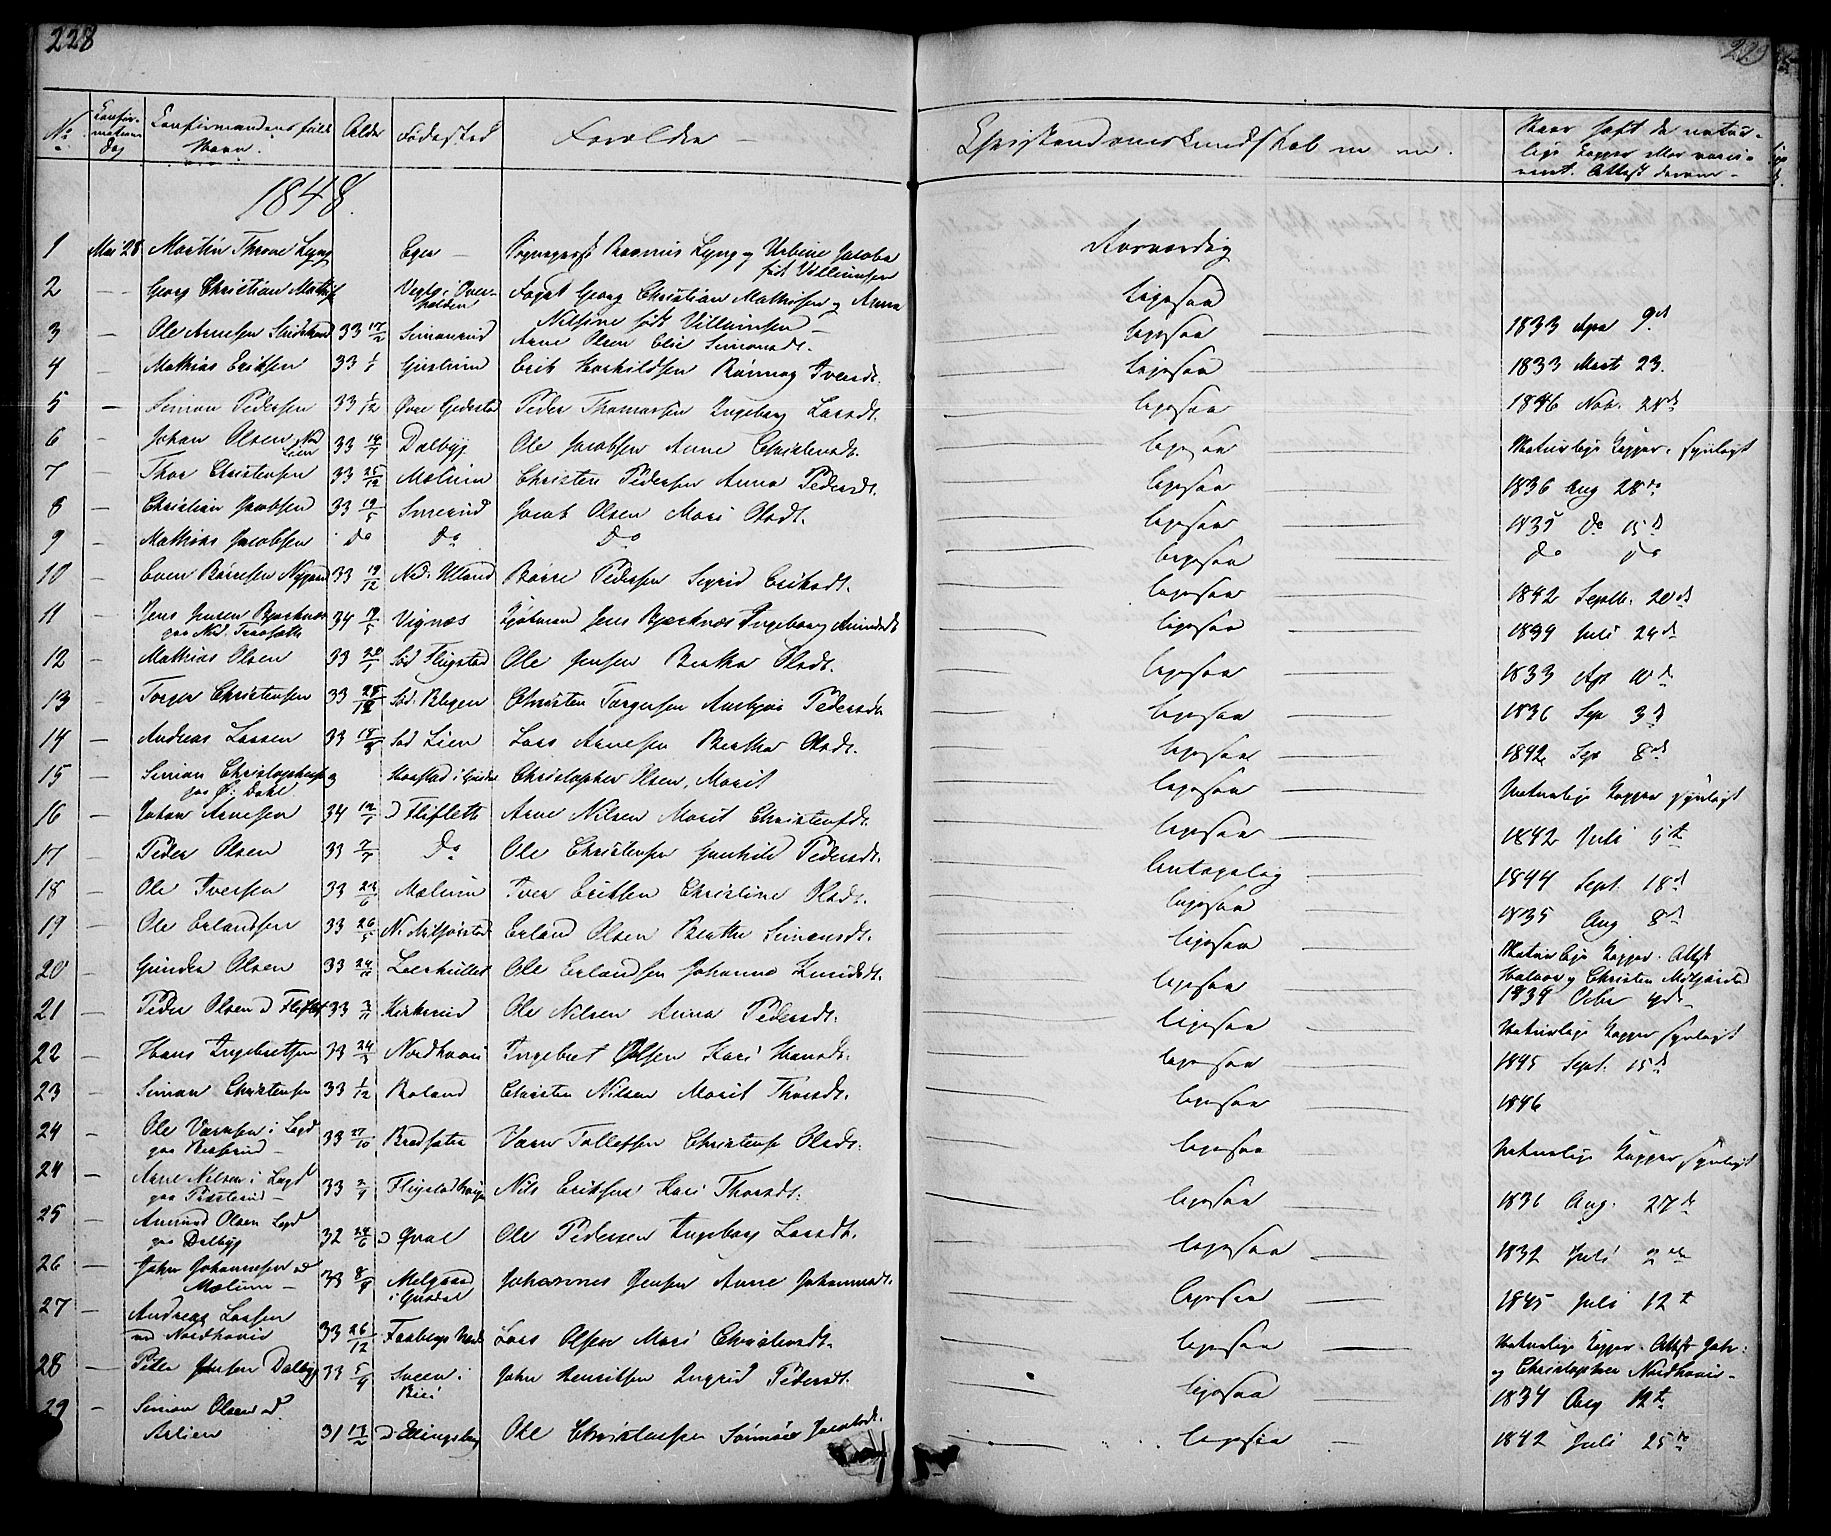 228
229
No Confirmations Dag Confirmandens fulde Navn. Alder Fødested Forældre Christendomskundskab m. m. Naar haft de naturlige Kopper eller vaccineret. Attest derom
1848.
1 Mai 28 Martin Throne Lyng Eger Sogneprest Rasmus Lyng og Urbine Jacobe født Villumsen Særværdig
2 — Georg Christian Mathis Georg Christian Mathisen og Anna Nilsine født Villumsen ligesaa
3 — Ole Arnesen 33 17/2 Simenrud Arne Olsen Elie Simensdt. ligesaa 1833 Apr 9d
4 — Mathias Eriksen 33 Erik Rønnog Iversdt. ligesaa 1833 Mart 23.
5 — Simon Pedersen 33 1/12 Øvre Gederstad Peder Thomassen Ingeborg Larsdt. ligesaa 1846 Nov. 28d
6 — Johan Olsen Nd Lien 33 14/7 Dalbye Ole Jacobsen Anne Christensdt. ligesaa Naturlige Kopper. synligt
7 — Thor Christensen 33 25/12 Mælum Christen Pedersen Anna Pedersdt. ligesaa 1836 Aug 28de
8 — Christian Jacobsen 33 19/5 Smerud Jacob Olsen Mari Olsdt. ligesaa 1835 Do 15d
9 — Mathias Jacobsen Do Do Do ligesaa Do Do
10 — Even Børresen Nygaard 33 19/12 Ned. Ulland Børre Pedersen Sigrid Eriksdt. ligesaa 1842 Septb. 20d
11 — Jens Jensen Bjerknæs paa Ned. 34 19/5 Vignæs Jens Bjerknæs Ingeborg ligesaa 1839 Juli 24d
12 — Mathias Olsen 33 20/1 Sdr Fligstad Ole Jensen Berthe Olsdt. ligesaa 1833 Apr
13 — Torger Christensen 33 28/12 Christen Torgersen Pedersdt. ligesaa 1836 Sep 3d
14 — Andreas Larsen 33 18/8 Sdr Lien Lars Arnesen Berthe Olsdt. ligesaa 1842 Sep 8d
15 — Simon paa Ø: Dahl Christopher Olsen, Marit ligesaa Naturlige Kopper synligt
16 — Johan Arnesen 34 12/1 Fliflette Arne Nilsen Marit Christensdt. ligesaa 1842 Juli 5te
17 — Peder Olsen 33 2/7 Do Ole Christensen Gunhild Pedersdt. Antagelig 1844 Sept. 18d
18 — Ole Iversen 33 22/6 Mælum Iver Eriksen Christine Olsdt. ligesaa 1835 Aug 8d
19 — Ole Erlandsen 33 26/5 N. Mitjørstad Erland Olsen Berthe Simensdt. ligesaa Naturlige Kopper. Attst Halvor og Christen Mitjørstad
20 — Gunder Olsen 33 24/11 Leerhullet Ole Erlandsen Johanna Knudsdt. ligesaa 1834 Octbr 4de
21 — Peder Olsen 33 3/11 Kirkerud Ole Nilsen Anna Pedersdt. ligesaa Naturlige Kopper synligt
22 — Hans Ingebretsen 33 Nordhovi Ingebret Olsen Kari Hansdt. ligesaa 1845 Sept. 15d
23 — Simon Christensen 33 1/12 Roland Christen Nilsen Marit Thorsdt. ligesaa 1846
24 — Ole i Legd paa 33 27/10 Bredsæter Tollefsen Christense Olsdt. ligesaa Naturlige Kopper synligt
24 — Arne Nilsen i Legd paa 33 2/9 Fligstad Nils Eriksen Kari Thorsdt. ligesaa 1836 Aug. 27d
25 — Amund Olsen Legd paa Dalbye 32 24/6 Qvæl Ole Pedersen Ingeborg Larsdt. ligesaa 1832 Juli 2de
26 — John Johannesen Mælum 33 8/9 Melgaard i Gusdal Johannes Jensen Anne Johannesdt. ligesaa 1845 Juli 12t
27 — Andreas Larsen Nordhovi 33 26/12 Faabergs Lars Olsen Mari Christensdt. ligesaa Naturlige Kopper. Attst Joh. og Christopher Nordhovi
28 — Peder Jensen Dalbye 33 5/9 Sveen i Biri John Henriksen Ingrid Pedersdt. ligesaa 1834 Aug 12te
29 — Simon Olsen 31 17/2 Ellingsberg Ole Christensen Jacobsdt. ligesaa 1842 Juli 25de